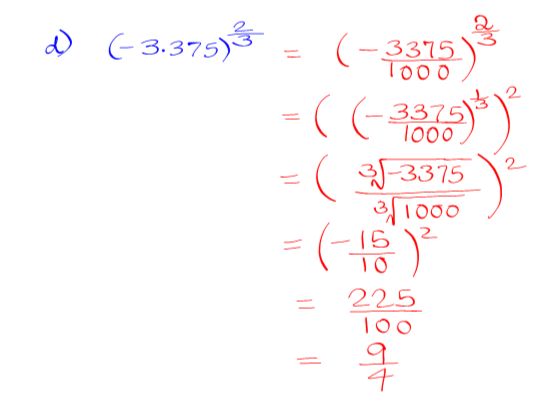 d) (-3.375)^(2/3) = (-3375/1000)^(2/3)
= ((-3375/1000)^(1/3))^2
= (∛-3375/∛1000)^2
= (-15/10)^2
= 225/100
= 9/4